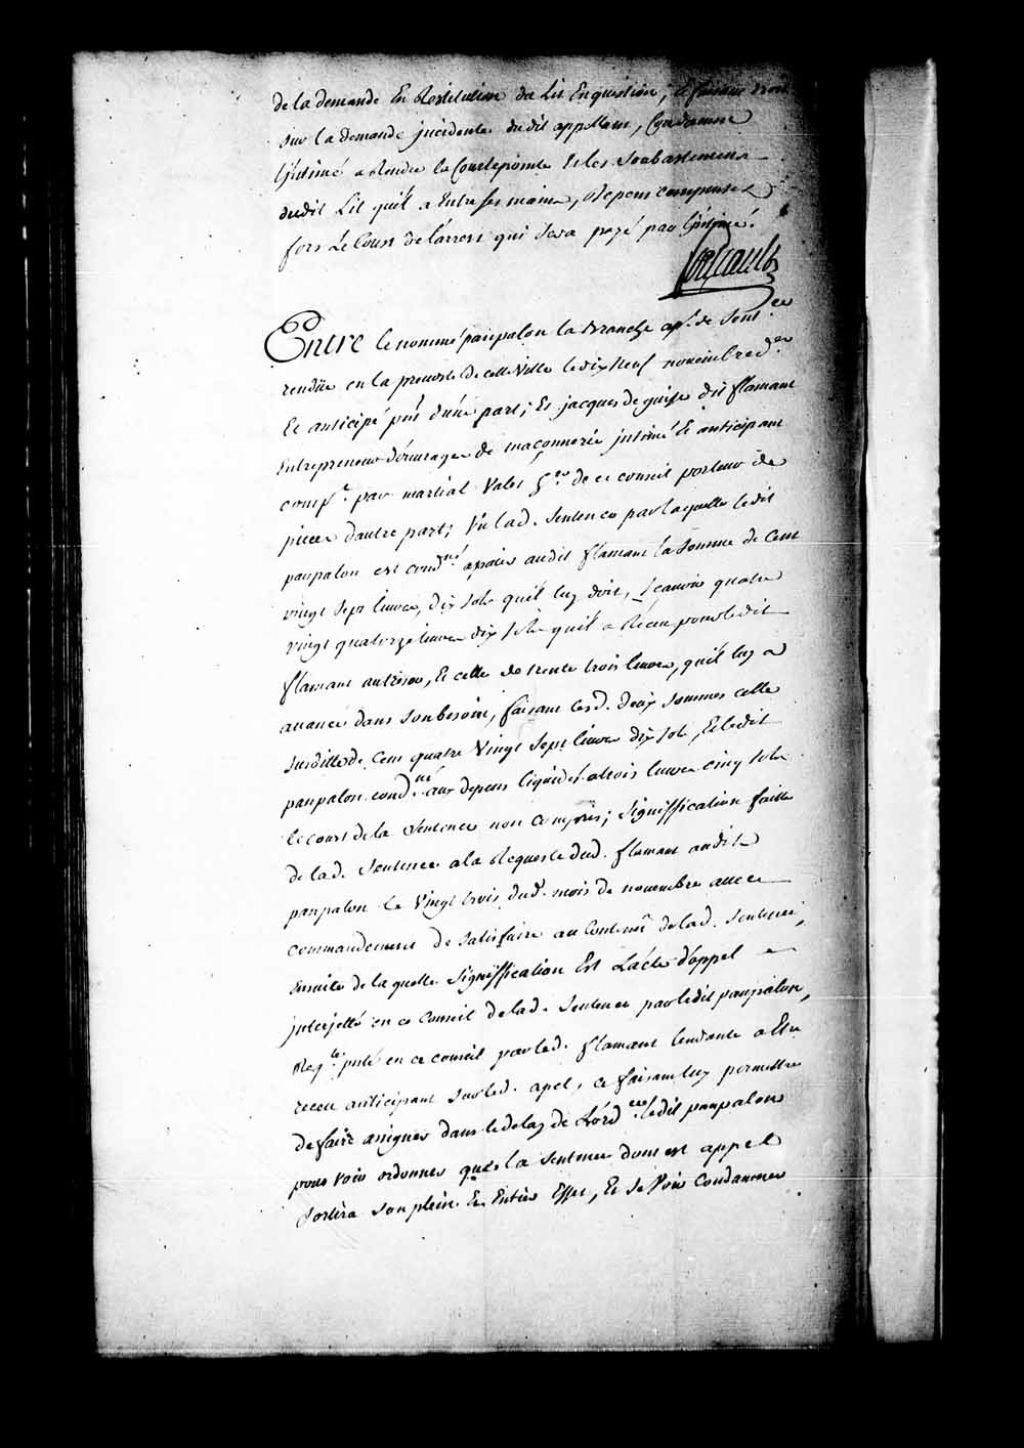 de la demande En Restitution du Lit En question, Et faisant droit
sur la demande jncidente dudit appellant, Condamne
L'jntimé a Rendre la Courtepointe Et les Soubastemens
dudit Lit qu'il a Entre ses mains, depens compensez
fors Le Coust de l'arrest qui sera payé par l'jntimé.
Entre le nommé paupalon la branche apt. de Sentce
rendüe en la prevosté de cette Ville le dix Neuf novembre der
Et anticipé pnt d'une part; Et jacques de guise dit flamant
Entrepreneur d'ouvrages de maçonnerie jntimé Et anticipant
comp. par martial Vallet her de ce conseil porteur de
pieces d'autre part; Vu lad. Sentence par laquelle ledit
paupalon est condné apaier audit flamant la Somme de Cent
vingt sept livres, dix sols qu'il luy doit, Scavoir quatre
vingt quatorze livres dix sols qu'il a Receu pour ledit
flamant au tresor, Et celle de trente trois livres, qu'il luy a
avancé dans son besoin, faisant lesd. deux sommes celle
susditte de Cent quatre Vingt Sept livres dix sols, Et ledit
paupalon condné aux depens liquidés a trois livres cinq sols
le coust de la Sentence non compris; Signiffication faitte
de lad. Sentence a la Requeste dud. flamant audit
paupalon le Vingt trois dud. mois de novembre avec
commandement de Satisfaire au Contenu de lad. Sentence,
Ensuite de laquelle Signiffication Est L'acte d'appel
jnterjetté en ce Conseil de lad. Sentence par ledit paupalon,
Reqte pnté en ce conseil par led. flamant tendante a Estre
receu anticipant sur led. apel, ce faisant luy permettre
de faire assigner dans le delay de L'ordce ledit paupalon
pour voir ordonner que la Sentence dont est appel
sortira son plein Et Entier Effet, Et se Voir Condamner